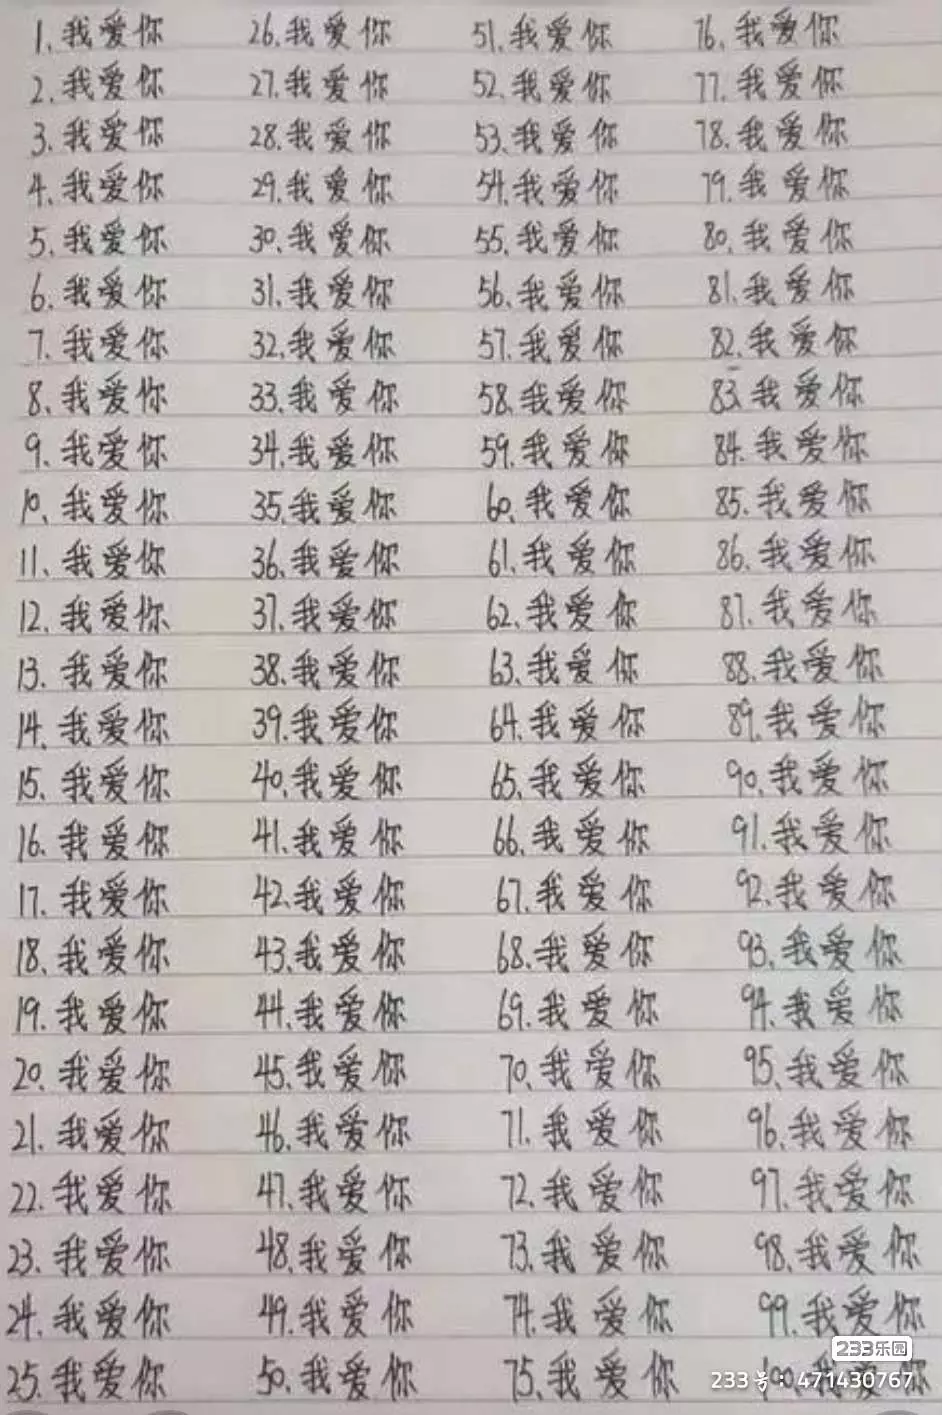 1.我爱你
2.我爱你
3.我爱你
4.我爱你
5.我爱你
6.我爱你
7.我爱你
8.我爱你
9.我爱你
10.我爱你
11.我爱你
12.我爱你
13.我爱你
14.我爱你
15.我爱你
16.我爱你
17.我爱你
18.我爱你
19.我爱你
20.我爱你
21.我爱你
22.我爱你
23.我爱你
24.我爱你
25.我爱你
26.我爱你
27.我爱你
28.我爱你
29.我爱你
30.我爱你
31.我爱你
32.我爱你
33.我爱你
34.我爱你
35.我爱你
36.我爱你
37.我爱你
38.我爱你
39.我爱你
40.我爱你
41.我爱你
42.我爱你
43.我爱你
44.我爱你
45.我爱你
46.我爱你
47.我爱你
48.我爱你
49.我爱你
50.我爱你
51.我爱你
52.我爱你
53.我爱你
54.我爱你
55.我爱你
56.我爱你
57.我爱你
58.我爱你
59.我爱你
60.我爱你
61.我爱你
62.我爱你
63.我爱你
64.我爱你
65.我爱你
66.我爱你
67.我爱你
68.我爱你
69.我爱你
70.我爱你
71.我爱你
72.我爱你
73.我爱你
74.我爱你
75.我爱你
76.我爱你
77.我爱你
78.我爱你
79.我爱你
80.我爱你
81.我爱你
82.我爱你
83.我爱你
84.我爱你
85.我爱你
86.我爱你
87.我爱你
88.我爱你
89.我爱你
90.我爱你
91.我爱你
92.我爱你
93.我爱你
94.我爱你
95.我爱你
96.我爱你
97.我爱你
98.我爱你
99.我爱你
100.我爱你
233乐园
233号：471430767